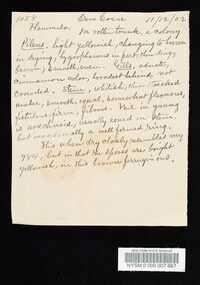 1058 Orra Corse 11/02/02
on rotten trunk, a colony
Pileus, light yellowish, changing to brown
in drying, hygrophanous in part, thin, dingy
brown, smooth, even. Gills, adnate,
cinnamon color, broadest behind, not
crowded. Stem, whitish, then streaked
under, smooth, equal, somewhat flexuous,
fistulous, firm, fibrous. Veil in young
is arachnoid, usually coned on stem,
but occasionally a well formed ring.
This when dry closely resembles my
984, but in that the spores are bright
yellowish, in this brown ferruginous.
NEW YORK STATE MUSEUM
NYSM 0 000 007 667